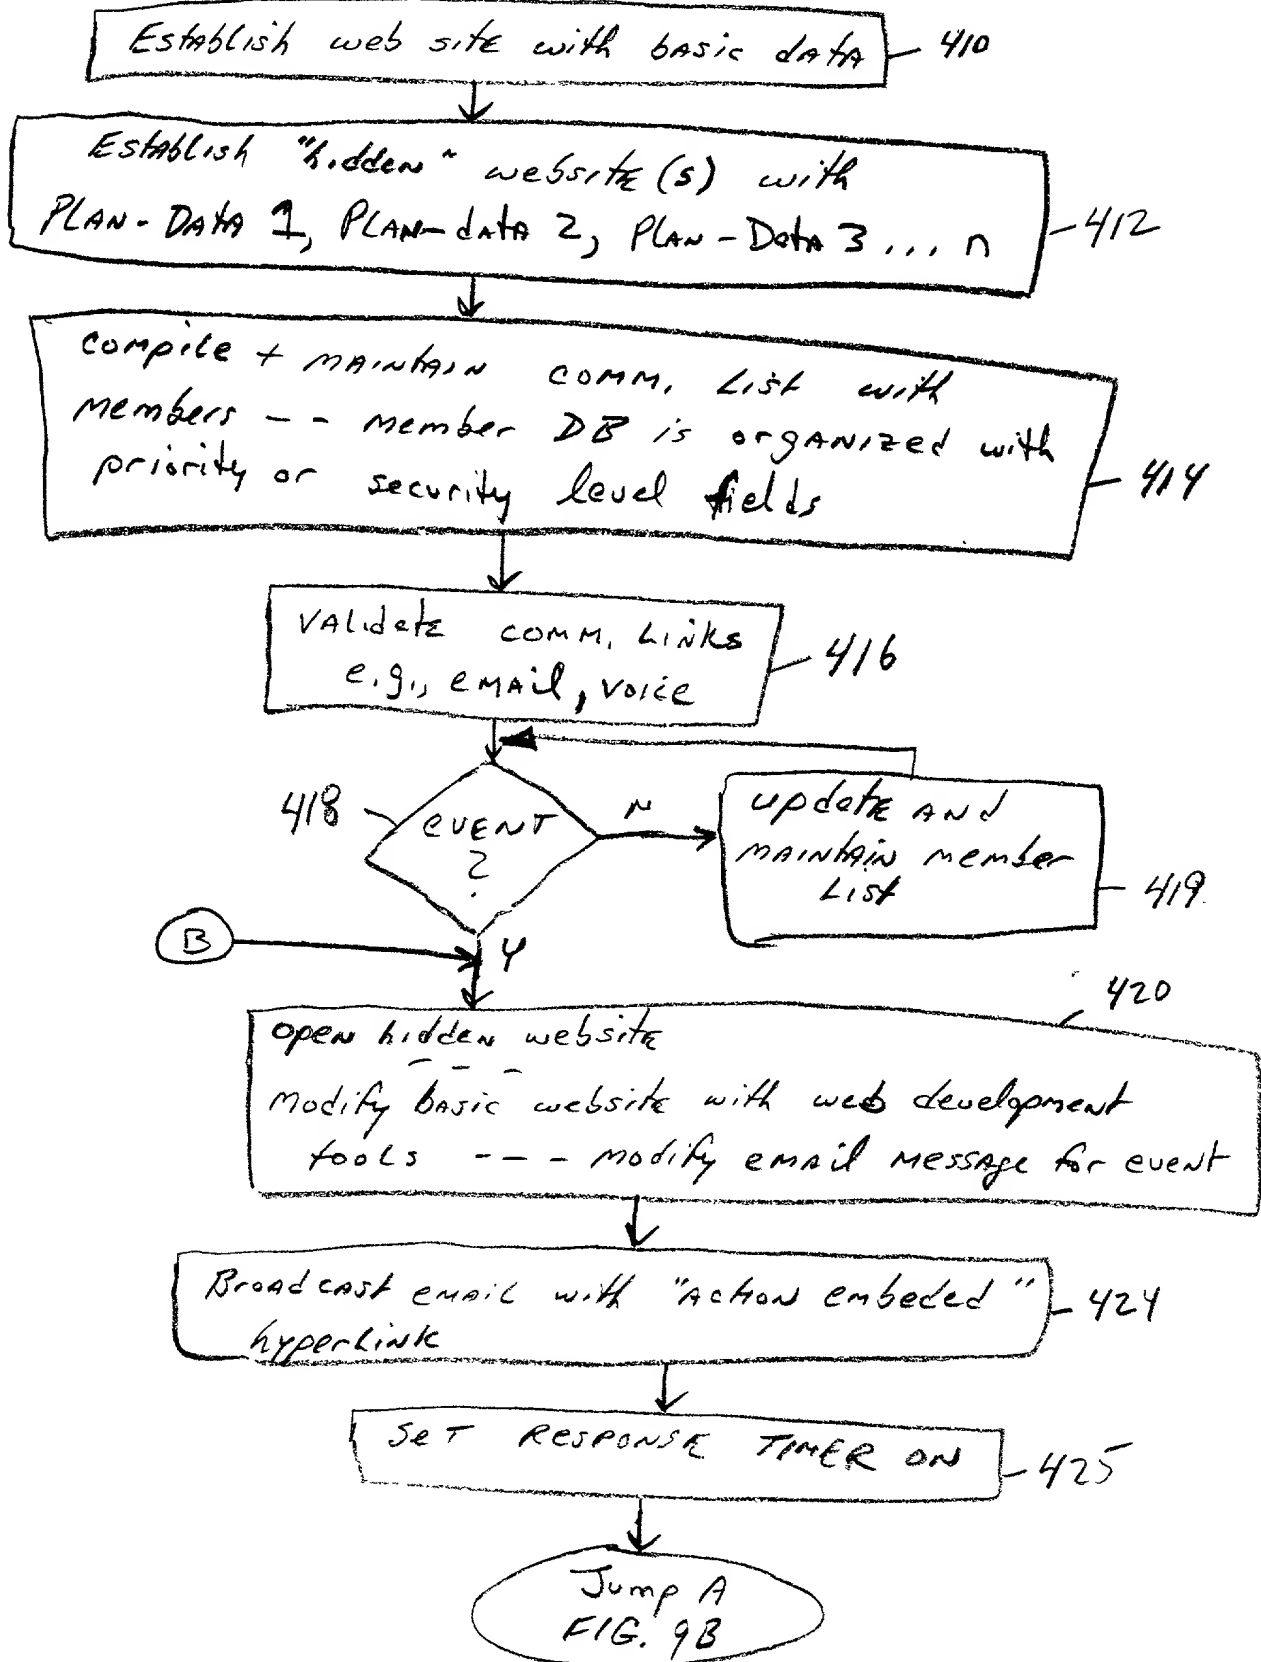 Establish web site with basic data 410
Establish "hidden" website(s) with
Plan-Data 1, Plan-data 2, Plan-Data 3 ... n 412
compile + maintain comm. List with
members -- member DB is organized with
priority or security level fields 414
Validate comm. Links
e.g., email, voice 416
418 event N
?
update and
maintain member
List 419
B Y
420
open hidden website
---
Modify basic website with web development
tools --- modify email message for event
Broadcast email with "Action embeded"
hyperlink 424
Set Response Timer on 425
Jump A
FIG. 9B